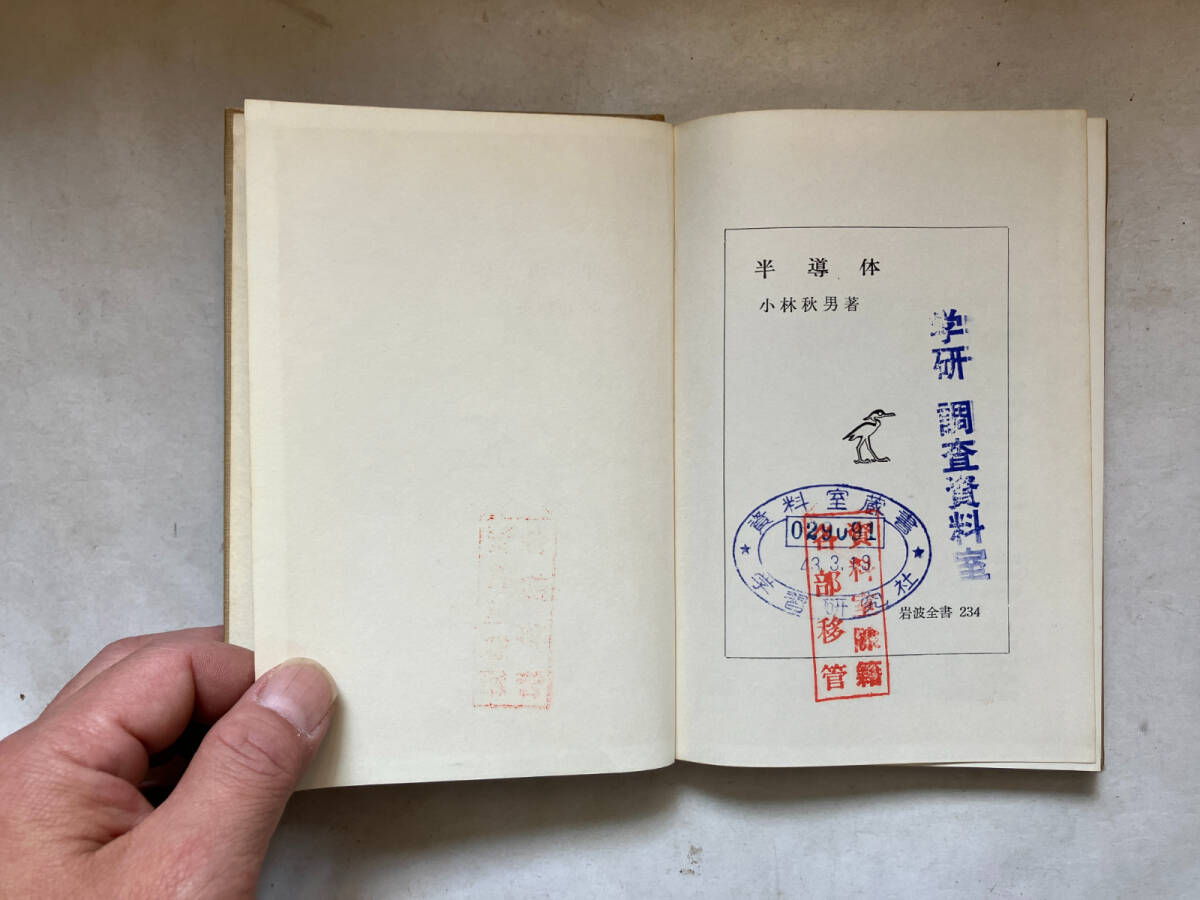 半導体
小林秋男著
学研 調査資料室
資料室蔵書
43.3.19
学習研究社
資料室除籍
各部移管
岩波全書 234